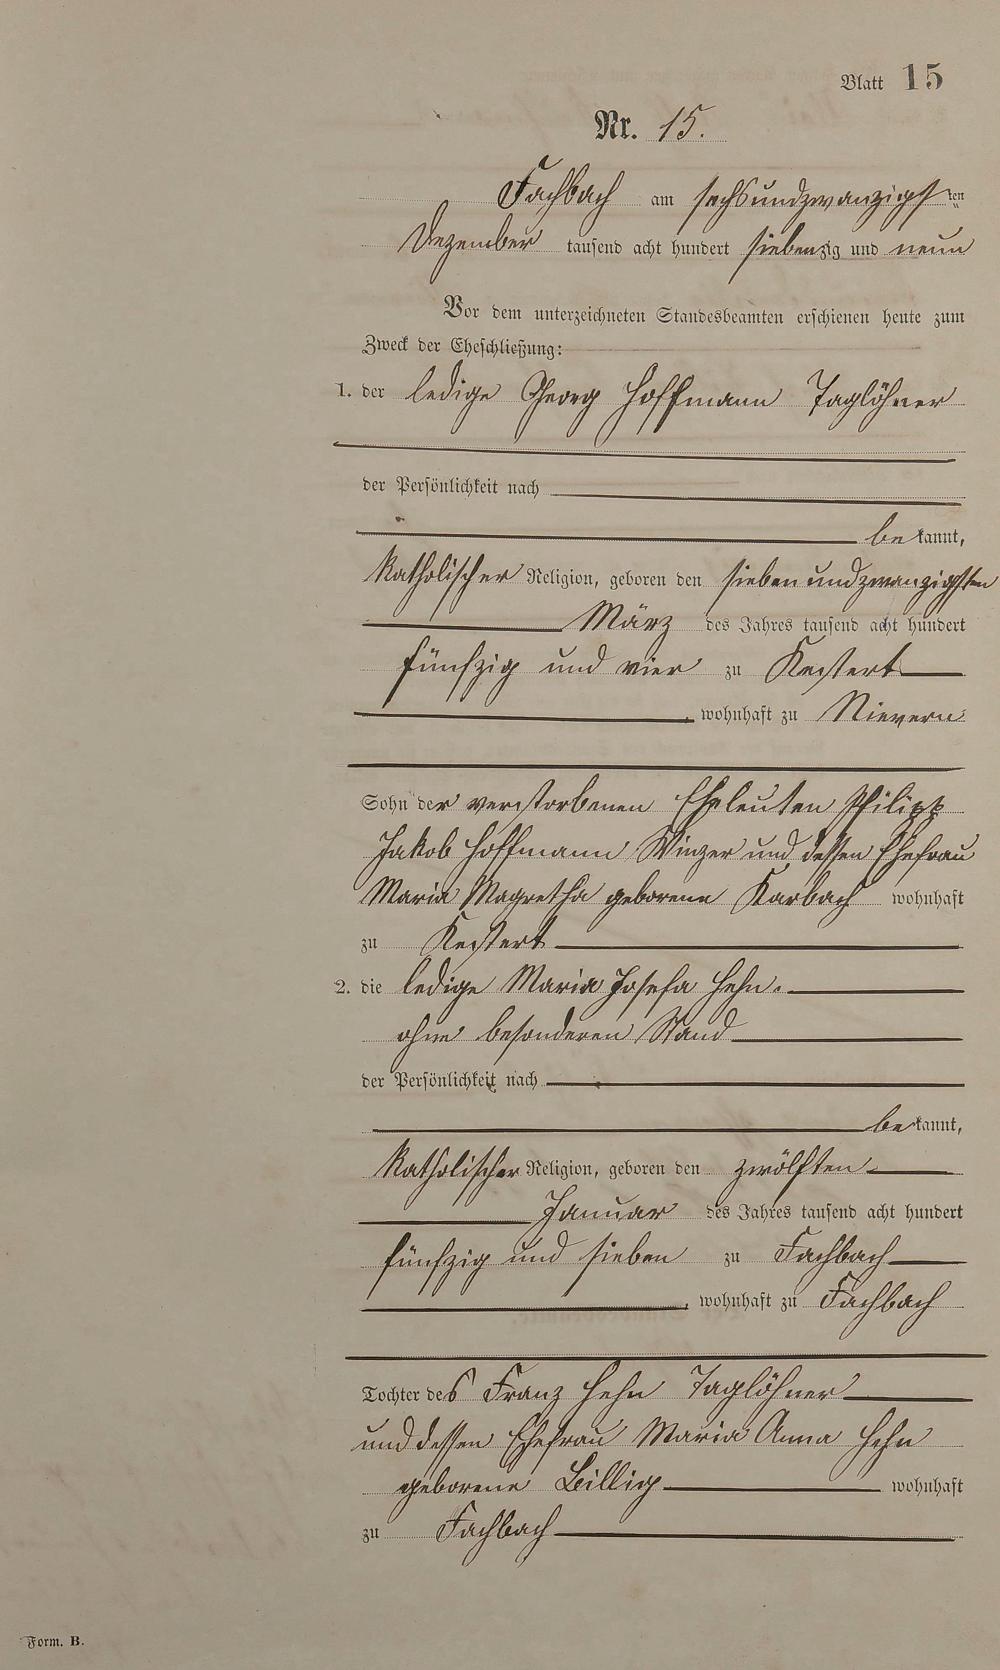 Blatt 15
Nr. 15.
Fachbach am sechsundzwanzigsten
Dezember tausend acht hundert siebenzig und neun
Vor dem unterzeichneten Standesbeamten erschienen heute zum
Zweck der Eheschließung:
1. der ledige Georg Hoffmann Taglöhner
der Persönlichkeit nach
bekannt,
katholischer Religion, geboren den siebenundzwanzigsten
März des Jahres tausend acht hundert
fünfzig und vier zu Kestert
, wohnhaft zu Nievern
Sohn der verstorbenen Eheleuten Philipp
Jakob Hoffmann Winzer und dessen Ehefrau
Maria Magretha geborene Karbach wohnhaft
zu Kestert
2. die ledige Maria Josefa Hehn.
ohne besonderen Stand
der Persönlichkeit nach
bekannt,
katholischer Religion, geboren den zwölften
Januar des Jahres tausend acht hundert
fünfzig und sieben zu Fachbach
, wohnhaft zu Fachbach
Tochter des Franz Hehn Taglöhner
und dessen Ehefrau Maria Anna Hehn
geborene Billig wohnhaft
zu Fachbach
Form. B.